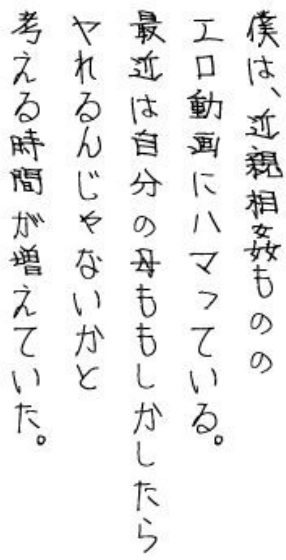 僕は、近親相姦ものの
エロ動画にハマっている。
最近は自分の母ももしかしたら
ヤれるんじゃないかと
考える時間が増えていた。